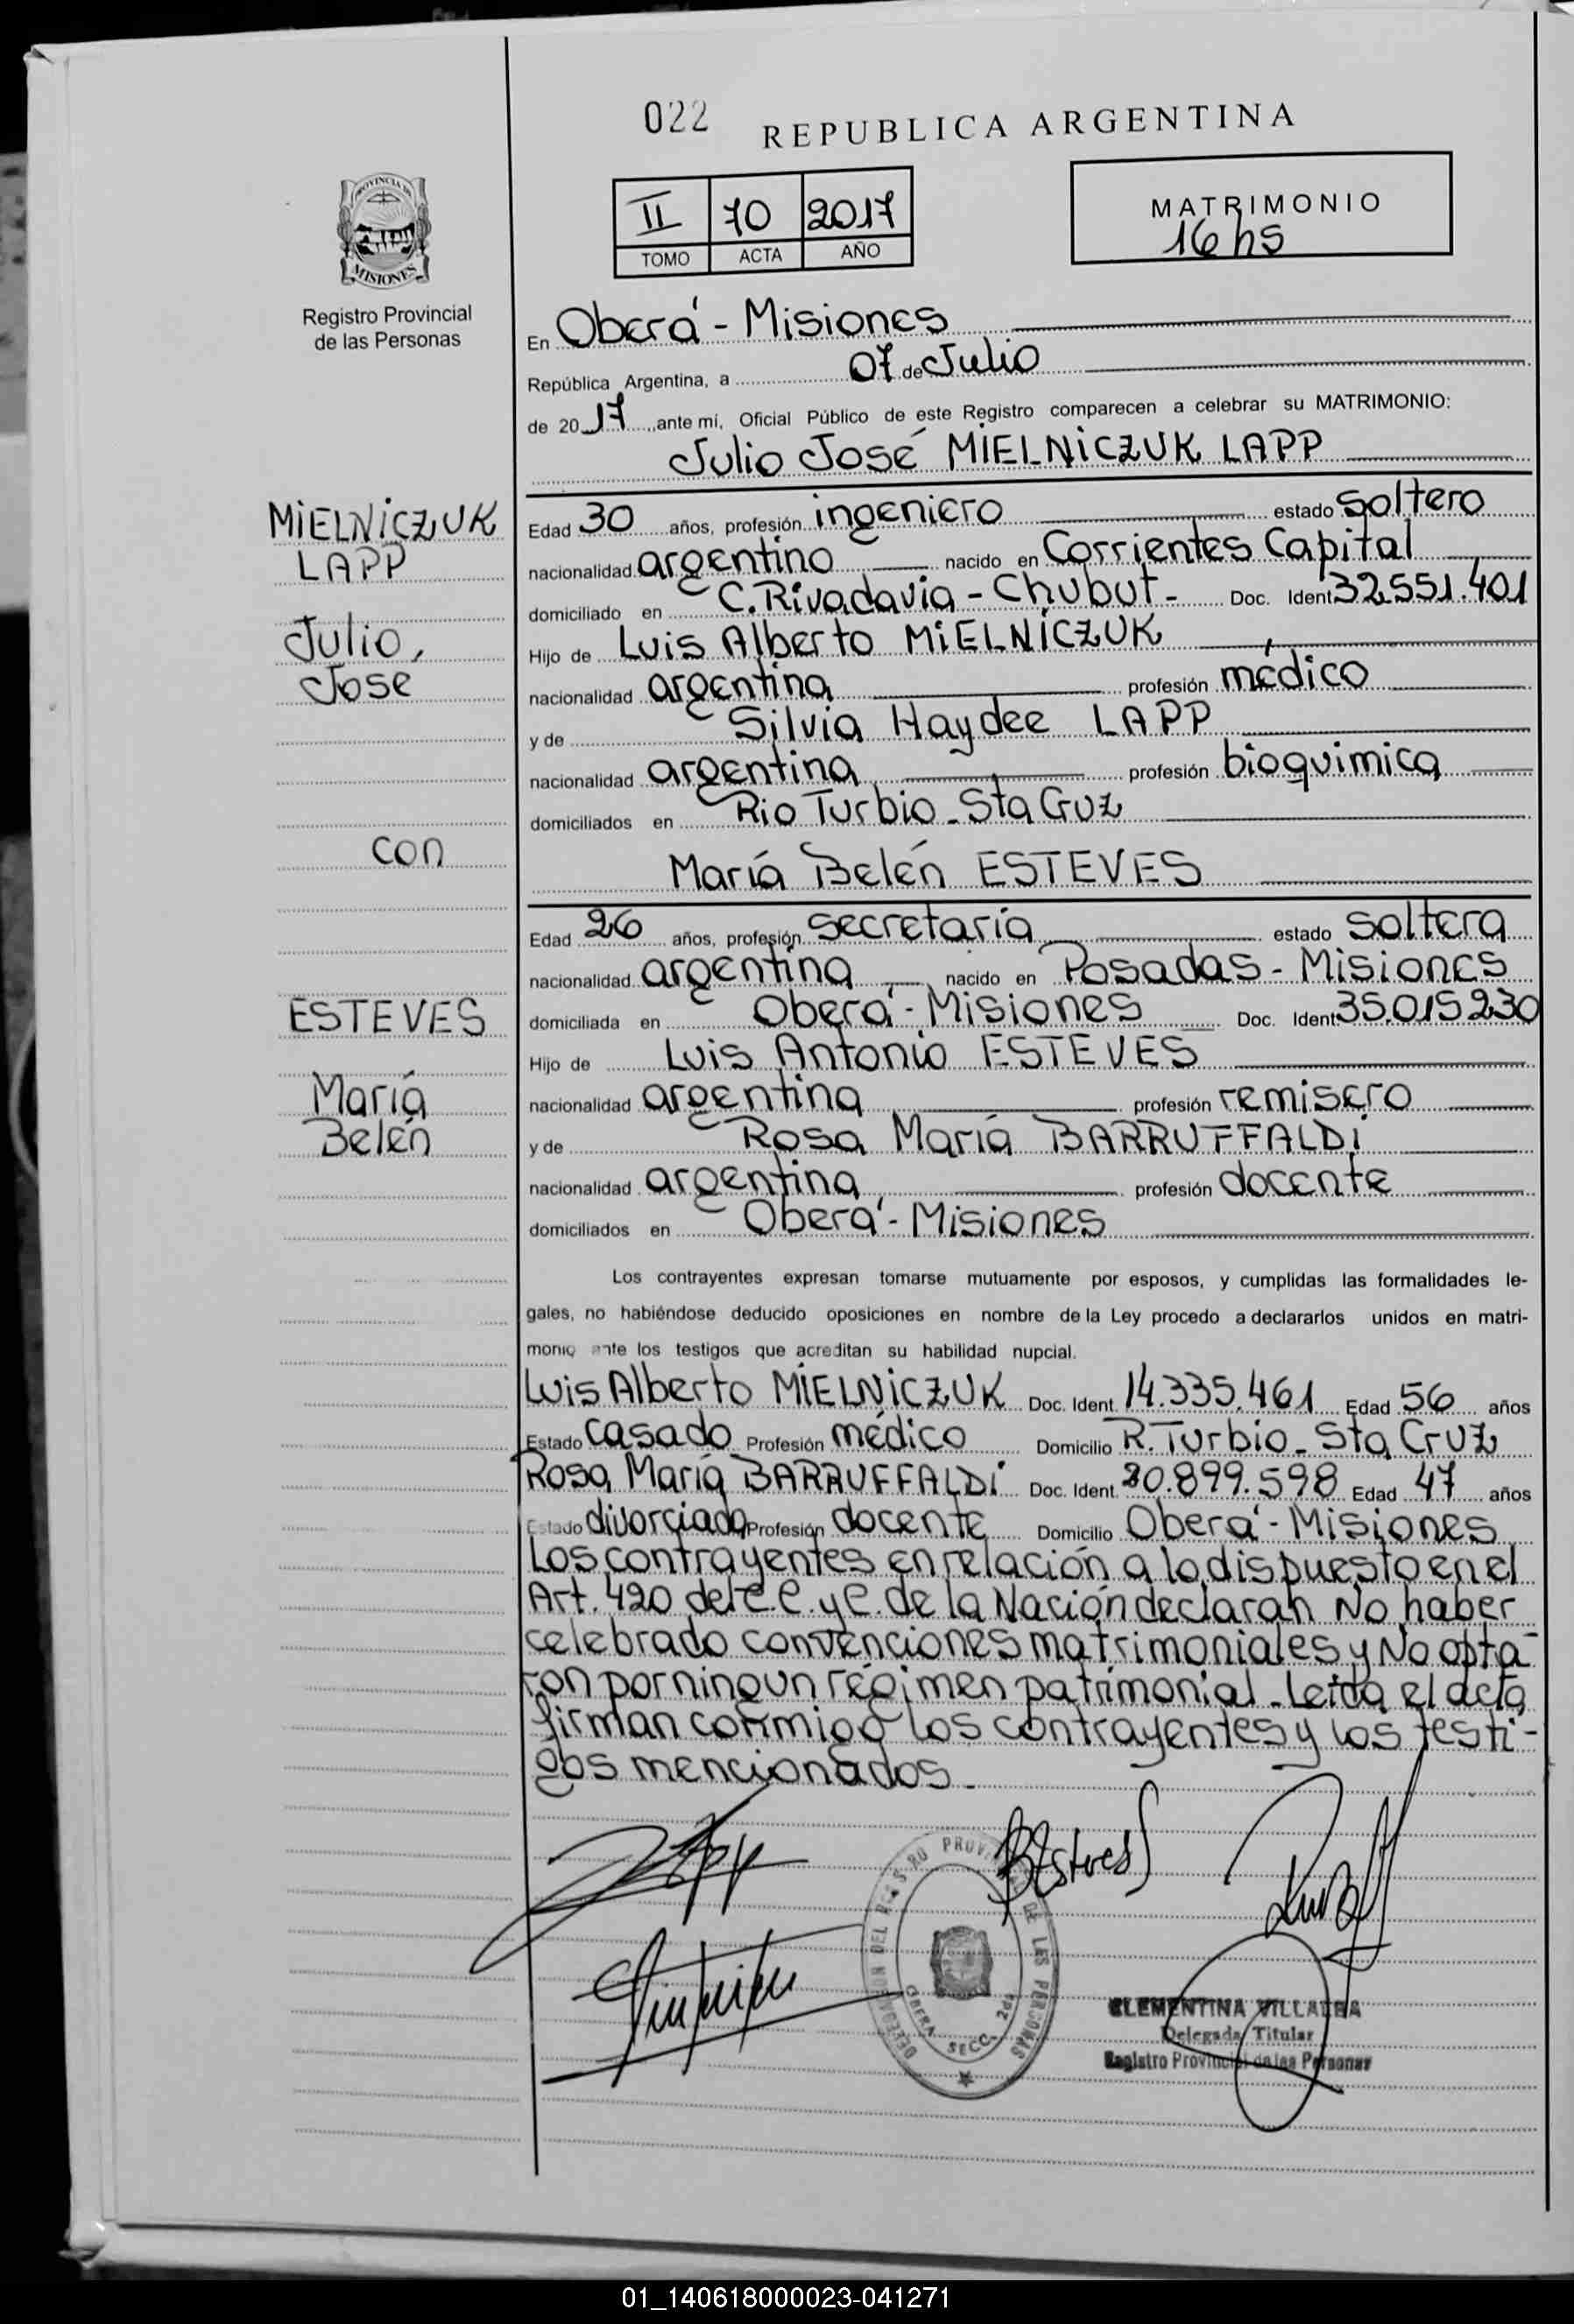 022
REPUBLICA ARGENTINA
II 70 2017
TOMO ACTA AÑO
MATRIMONIO
16 hs
PROVINCIA DE
MISIONES
Registro Provincial
de las Personas
En Oberá - Misiones
República Argentina, a 07 de Julio
de 2017 ,ante mí, Oficial Público de este Registro comparecen a celebrar su MATRIMONIO:
Julio José MIELNICZUK LAPP
MIELNICZUK
LAPP
Julio,
José
Edad 30 años, profesión ingeniero estado soltero
nacionalidad argentino nacido en Corrientes Capital
domiciliado en C. Rivadavia - Chubut - Doc. Ident 32.551.401
Hijo de Luis Alberto MIELNICZUK
nacionalidad argentina profesión médico
y de Silvia Haydee LAPP
nacionalidad argentina profesión bioquimica
domiciliados en Rio Turbio - Sta Cruz
con
María Belén ESTEVES
ESTEVES
María
Belén
Edad 26 años, profesión secretaría estado soltera
nacionalidad argentina nacido en Posadas - Misiones
domiciliada en Oberá - Misiones Doc. Ident. 35.015.230
Hijo de Luis Antonio ESTEVES
nacionalidad argentina profesión remisero
y de Rosa María BARRUFFALDI
nacionalidad argentina profesión docente
domiciliados en Oberá - Misiones
Los contrayentes expresan tomarse mutuamente por esposos, y cumplidas las formalidades le-
gales, no habiéndose deducido oposiciones en nombre de la Ley procedo a declararlos unidos en matri-
monio ante los testigos que acreditan su habilidad nupcial.
Luis Alberto MIELNICZUK Doc. Ident. 14.335.461 Edad 56 años
Estado casado Profesión médico Domicilio R. Turbio - Sta Cruz
Rosa María BARRUFFALDI Doc. Ident. 20.899.598 Edad 47 años
Estado divorciada Profesión docente Domicilio Oberá - Misiones
Los contrayentes en relación a lo dispuesto en el
Art. 420 del C.C. y C. de la Nación declaran No haber
celebrado convenciones matrimoniales y No opta-
ron por ningun régimen patrimonial. Leída el acta,
firman conmigo los contrayentes y los testi-
gos mencionados.
BEsteves
DELEGACION DEL REGISTRO PROVINCIAL DE LAS PERSONAS
OBERA SECC. 2da
CLEMENTINA VILLALBA
Delegada Titular
Registro Provincial de las Personas
01_140618000023-041271